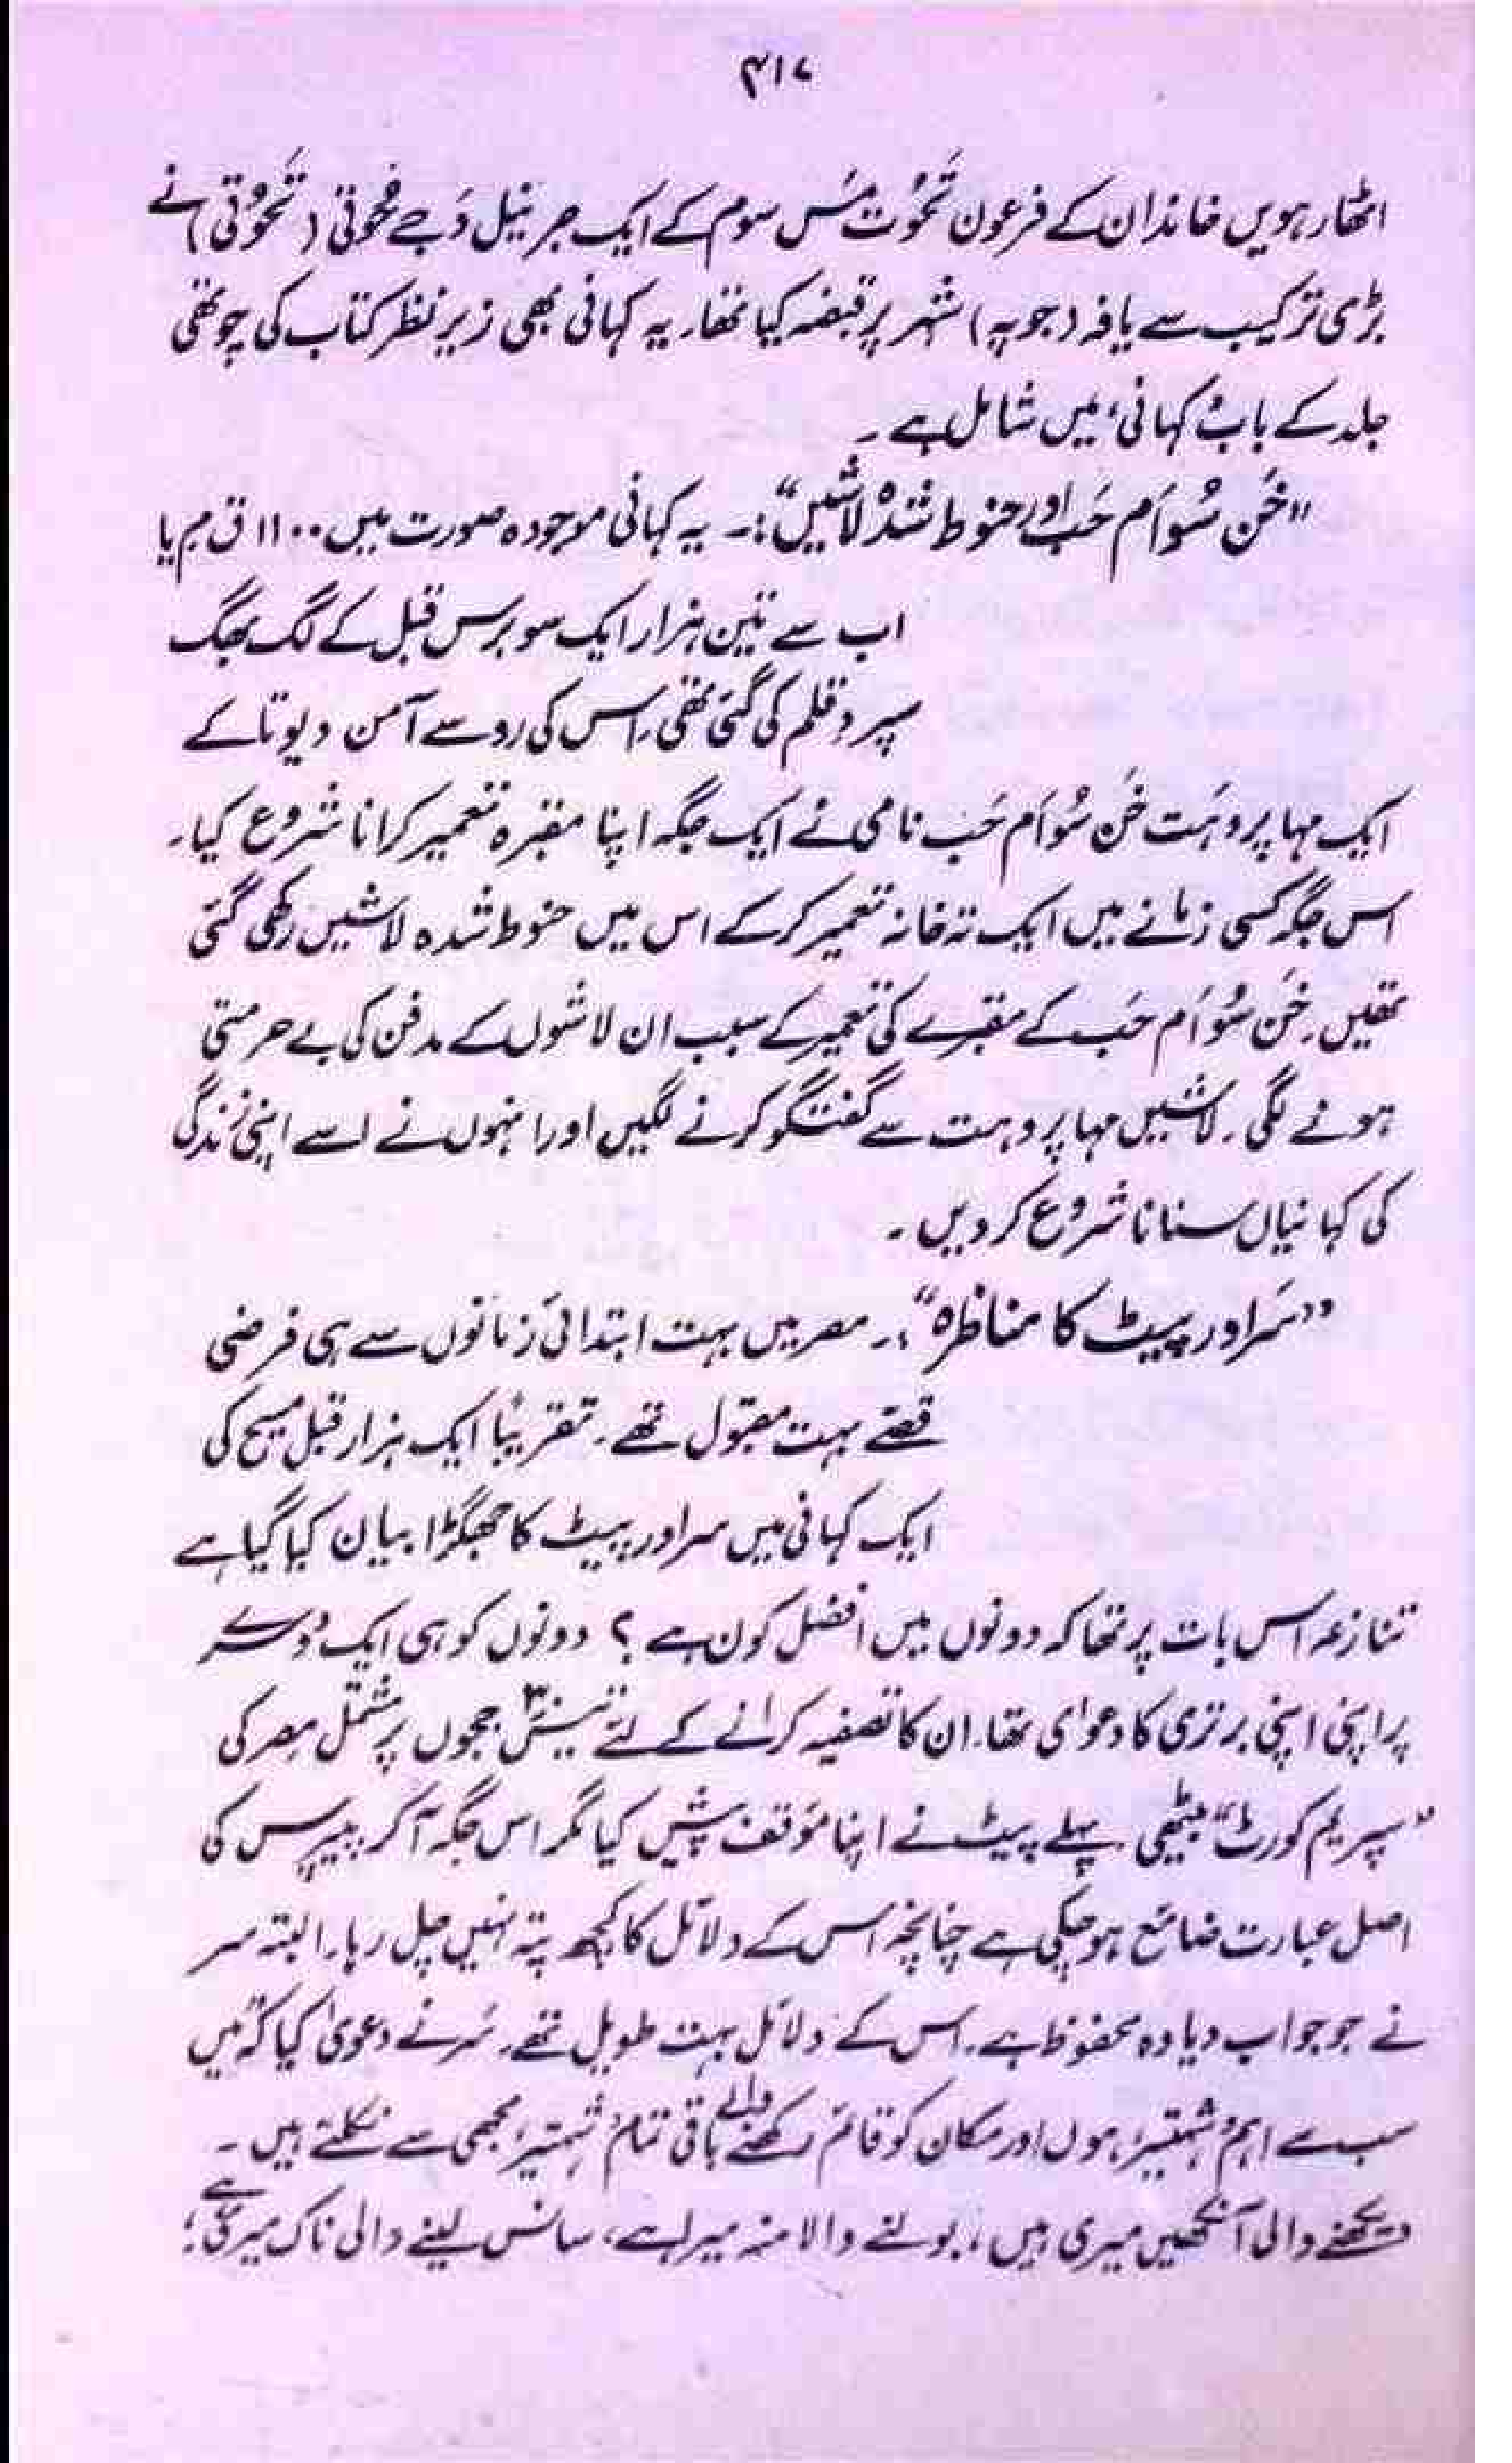 ۴۱۷
اٹھارہویں خاندان کے فرعون تحُوت مَس سوم کے ایک جرنیل دَجے حُوتی (تَحوُتی) نے
بڑی ترکیب سے یافہ (جوپہ) شہر پر قبضہ کیا تھا۔ یہ کہانی بھی زیر نظر کتاب کی چوتھی
جلد کے باب ’کہانی‘ میں شامل ہے۔
”خَن سُو اَم حَب اور حنوط شدہ لاشیں“:۔ یہ کہانی موجودہ صورت میں ۱۱۰۰ ق م یا
اب سے تین ہزار ایک سو برس قبل کے لگ بھگ
سپرد قلم کی گئی تھی۔ اس کی رو سے آمن دیوتا کے
ایک مہا پروہَت خَن سُو اَم حَب نامی نے ایک جگہ اپنا مقبرہ تعمیر کرانا شروع کیا۔
اس جگہ کسی زمانے میں ایک تہ خانہ تعمیر کر کے اس میں حنوط شدہ لاشیں رکھی گئی
تھیں۔ خَن سُو اَم حَب کے مقبرے کی تعمیر کے سبب ان لاشوں کے مدفن کی بے حرمتی
ہونے لگی۔ لاشیں مہا پروہت سے گفتگو کرنے لگیں اور انہوں نے اسے اپنی زندگی
کی کہانیاں سنانا شروع کر دیں۔
”سَر اور پیٹ کا مناظرہ“:۔ مصر میں بہت ابتدائی زمانوں سے ہی فرضی
قصّے بہت مقبول تھے۔ تقریباً ایک ہزار قبل مسیح کی
ایک کہانی میں سر اور پیٹ کا جھگڑا بیان کیا گیا ہے
تنازعہ اس بات پر تھا کہ دونوں میں افضل کون ہے؟ دونوں کو ہی ایک دُوسرے
پر اپنی اپنی برتری کا دعوای تھا۔ ان کا تصفیہ کرانے کے لئے تیسؔ ججوں پر مشتمل مِصر کی
”سپریم کورٹ“ بیٹھی۔ پہلے پیٹ نے اپنا مؤقف پیش کیا مگر اس جگہ آکر پیپرس کی
اصل عبارت ضائع ہوچکی ہے چنانچہ اس کے دلائل کا کچھ پتہ نہیں چل رہا۔ البتہ سر
نے جو جواب دیا وہ محفوظ ہے۔ اس کے دلائل بہت طویل تھے۔ سَر نے دعویٰ کیا کہ ’میں
سب سے اہم ’شہتیر‘ ہوں اور مکان کو قائم رکھنے والے باقی تمام ’شہتیر‘ مجھی سے نکلتے ہیں۔
دیکھنے والی آنکھیں میری ہیں، بولنے والا منہ میرا ہے، سانس لینے والی ناک میری ہے؛